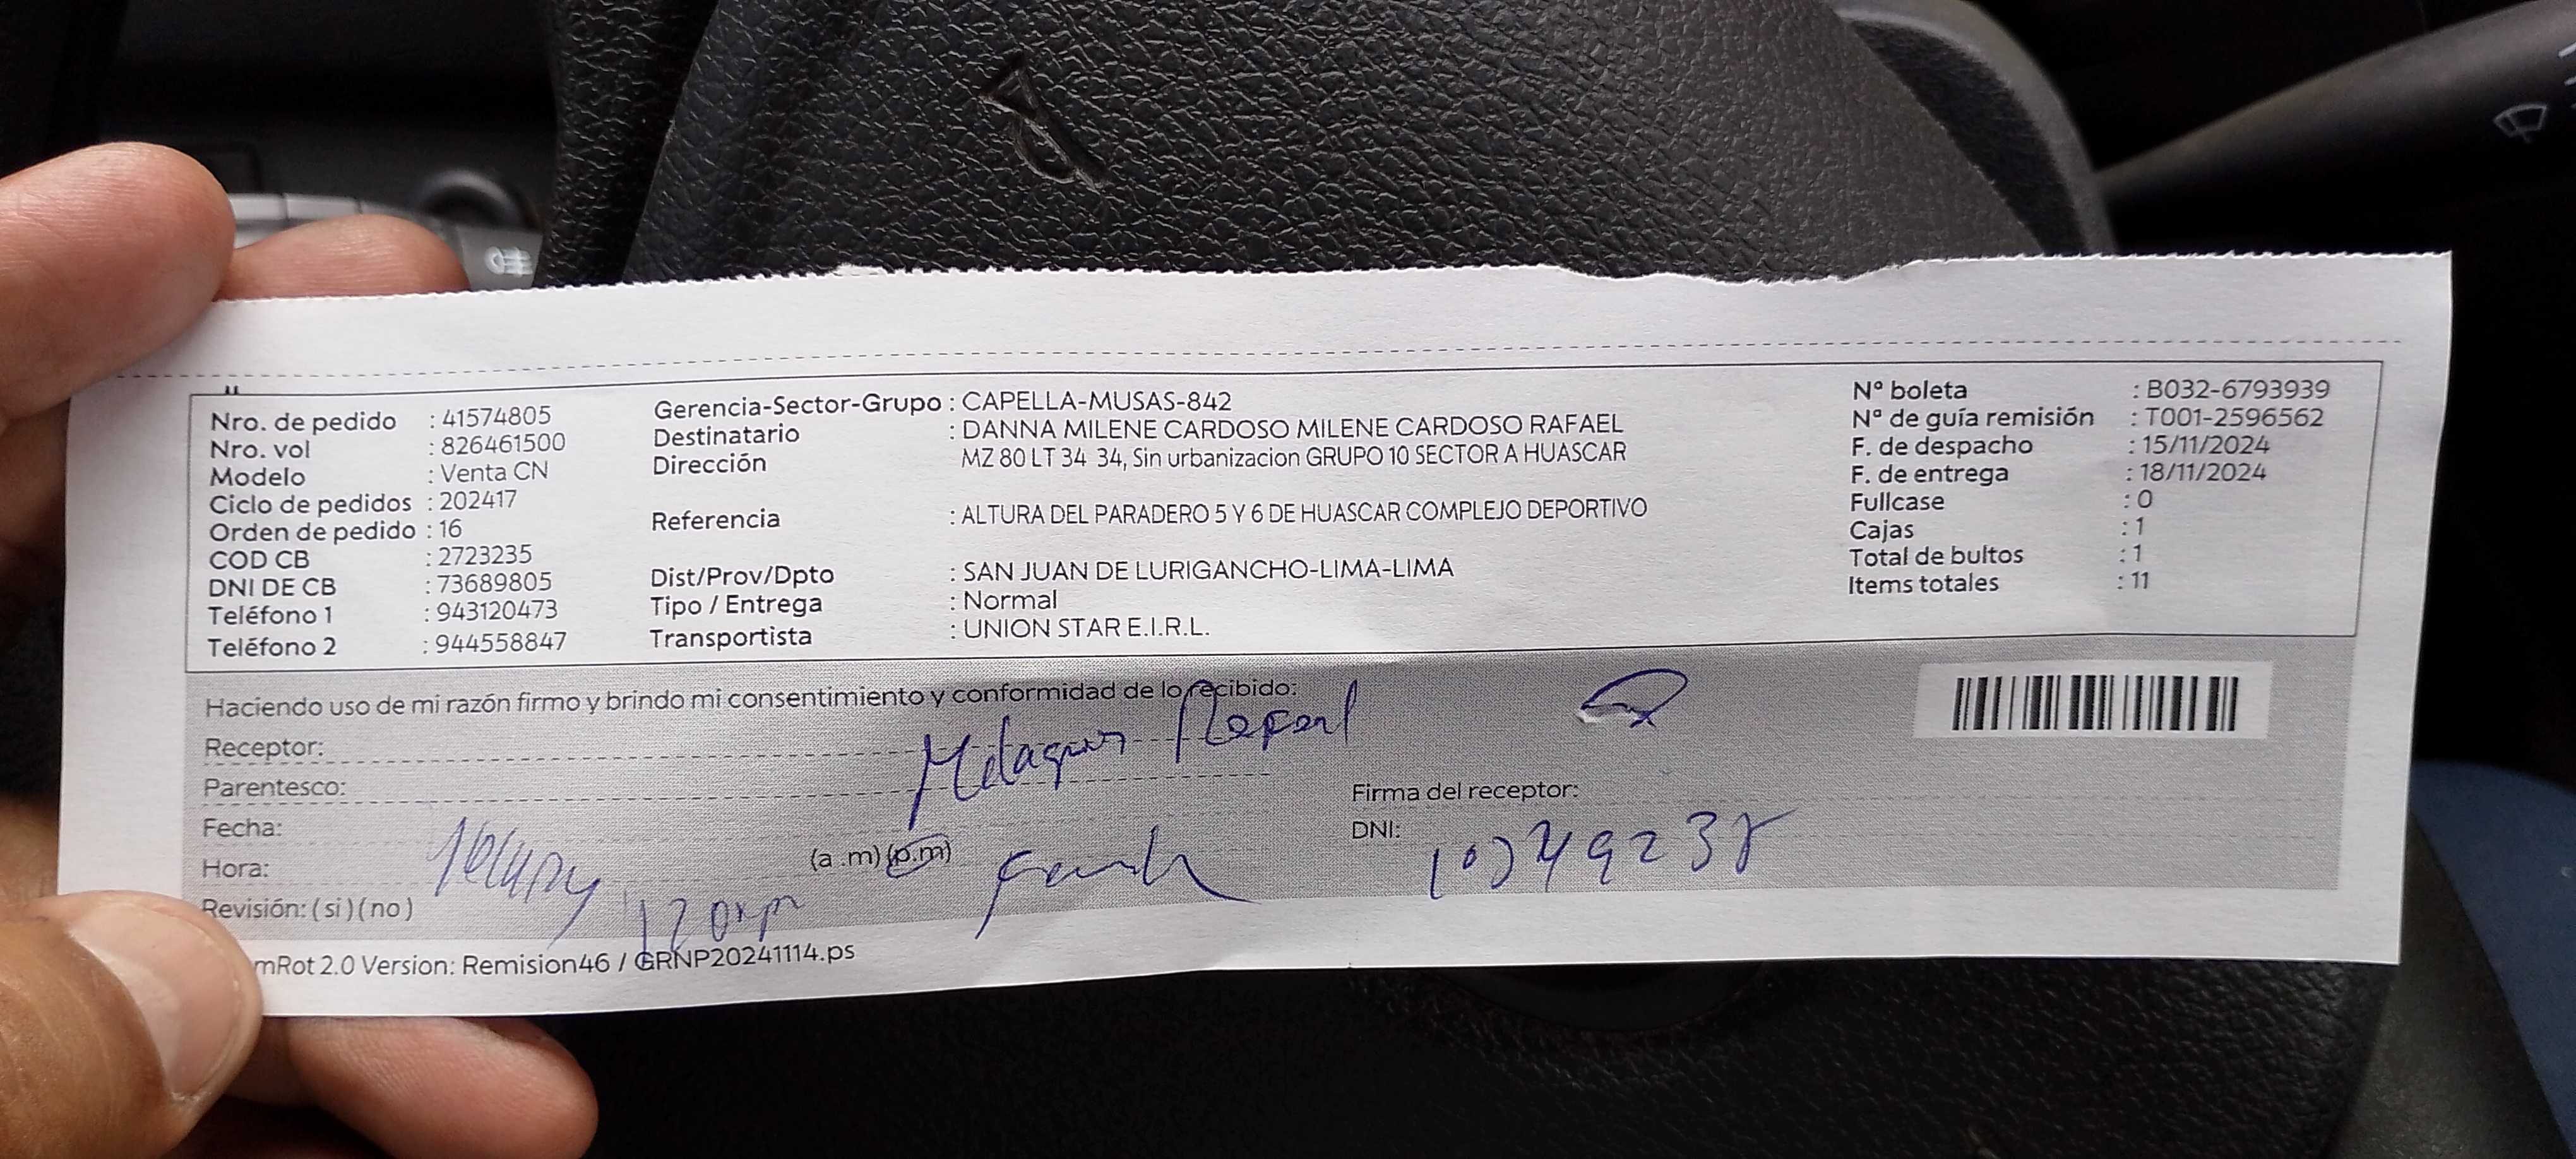 Nro. de pedido : 41574805
Nro. vol : 826461500
Modelo : Venta CN
Ciclo de pedidos : 202417
Orden de pedido : 16
COD CB : 2723235
DNI DE CB : 73689805
Teléfono 1 : 943120473
Teléfono 2 : 944558847
Gerencia-Sector-Grupo : CAPELLA-MUSAS-842
Destinatario : DANNA MILENE CARDOSO MILENE CARDOSO RAFAEL
Dirección MZ 80 LT 34 34, Sin urbanizacion GRUPO 10 SECTOR A HUASCAR
Referencia : ALTURA DEL PARADERO 5 Y 6 DE HUASCAR COMPLEJO DEPORTIVO
Dist/Prov/Dpto : SAN JUAN DE LURIGANCHO-LIMA-LIMA
Tipo / Entrega : Normal
Transportista : UNION STAR E.I.R.L.
Nº boleta : B032-6793939
Nº de guía remisión : T001-2596562
F. de despacho : 15/11/2024
F. de entrega : 18/11/2024
Fullcase : 0
Cajas : 1
Total de bultos : 1
Items totales : 11
Haciendo uso de mi razón firmo y brindo mi consentimiento y conformidad de lo recibido:
Receptor:
Parentesco:
Fecha:
Hora: (a .m) (p.m)
Revisión: ( si ) ( no )
Firma del receptor:
DNI:
mRot 2.0 Version: Remision46 / GRNP20241114.ps